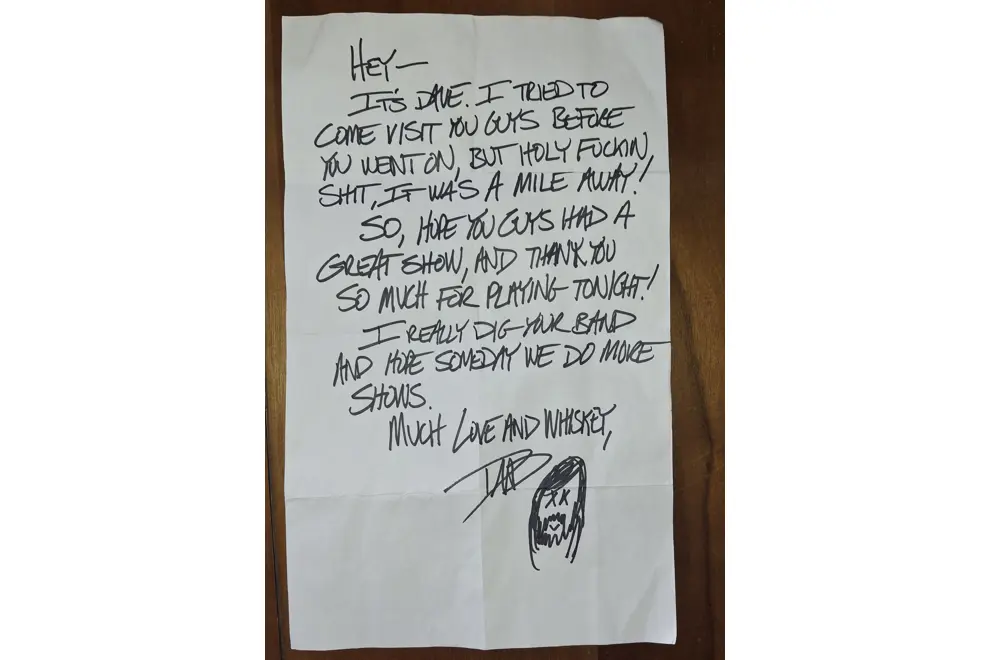 HEY—
IT'S DAVE. I TRIED TO
COME VISIT YOU GUYS BEFORE
YOU WENT ON, BUT HOLY FUCKIN
SHIT, IT WAS A MILE AWAY!
SO, HOPE YOU GUYS HAD A
GREAT SHOW, AND THANK YOU
SO MUCH FOR PLAYING TONIGHT!
I REALLY DIG YOUR BAND
AND HOPE SOMEDAY WE DO MORE
SHOWS.
MUCH LOVE AND WHISKEY,